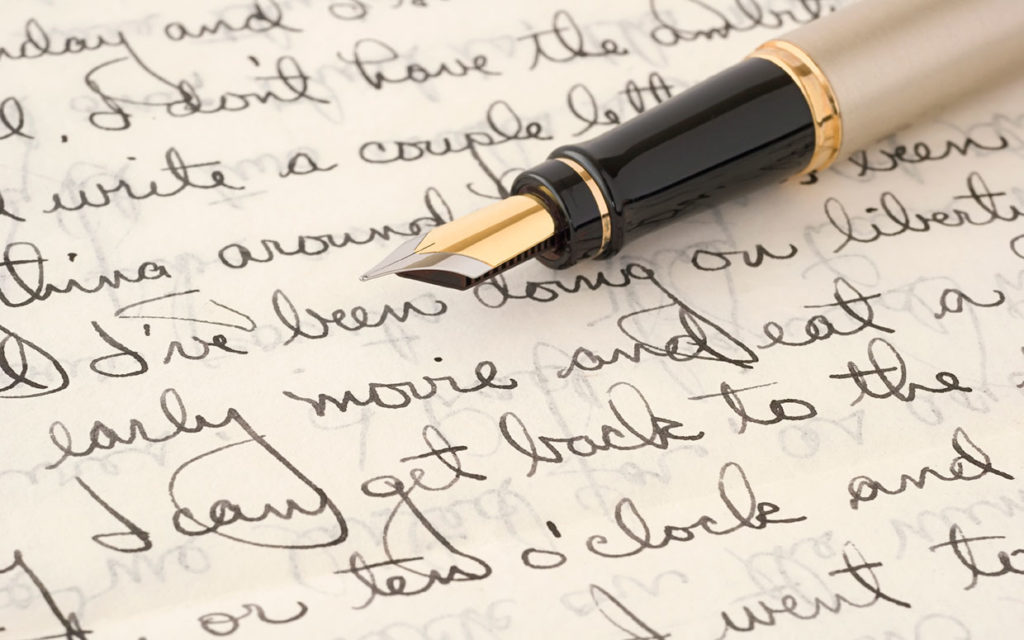 and
I don't have the
write a couple
around
I've been doing on liberty
early movie and eat a
I can get back to the
or ten o'clock and
I went to